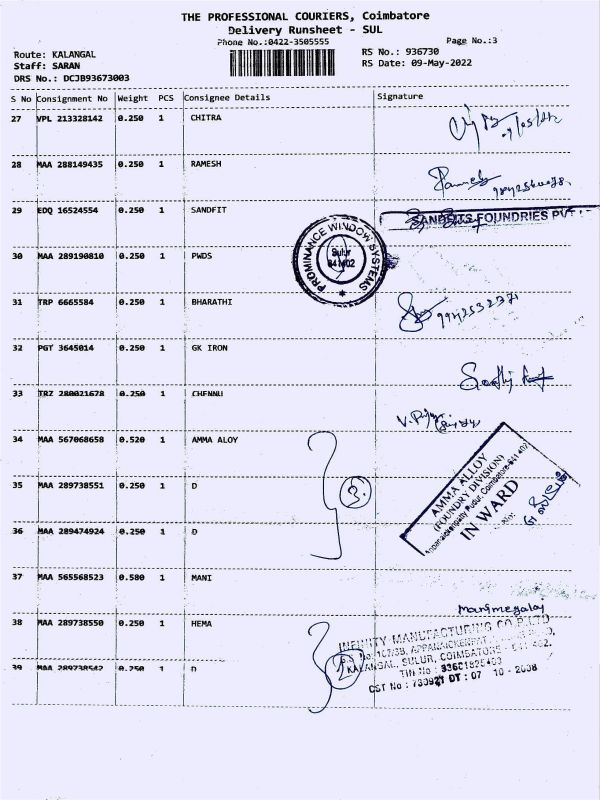 THE PROFESSIONAL COURIERS, Coimbatore
Delivery Runsheet - SUL
Phone No.:0422-3505555
Page No.:3
Route: KALANGAL
RS No.: 936730
Staff: SARAN
RS Date: 09-May-2022
DRS No.: DCJB93673003
S No Consignment No Weight PCS Consignee Details Signature
27 VPL 213328142 0.250 1 CHITRA
28 MAA 288149435 0.250 1 RAMESH
29 EDQ 16524554 0.250 1 SANDFIT
SANDFITS FOUNDRIES PVT
30 MAA 289190810 0.250 1 PWDS
PROMINANCE WINDOW SYSTEMS
Sulur
641402
31 TRP 6665584 0.250 1 BHARATHI
32 PGT 3645014 0.250 1 GK IRON
33 TRZ 280021678 0.250 1 CHENNU
34 MAA 567068658 0.520 1 AMMA ALOY
35 MAA 289738551 0.250 1 D
3.
AMMA ALLOY
(FOUNDRY DIVISION)
IN WARD
36 MAA 289474924 0.250 1 D
37 MAA 565568523 0.580 1 MANI
Manimegalai
38 MAA 289738550 0.250 1 HEMA
INFINITY MANUFACTURING CO P LTD
KALANGAL, SULUR, COIMBATORE - 641 402.
39 MAA 289738542 0.250 1 D
2
CST No : 730921 DT : 07 10 - 2008